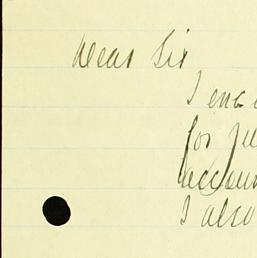 Dear Sir
I enc
for
accoun
I also